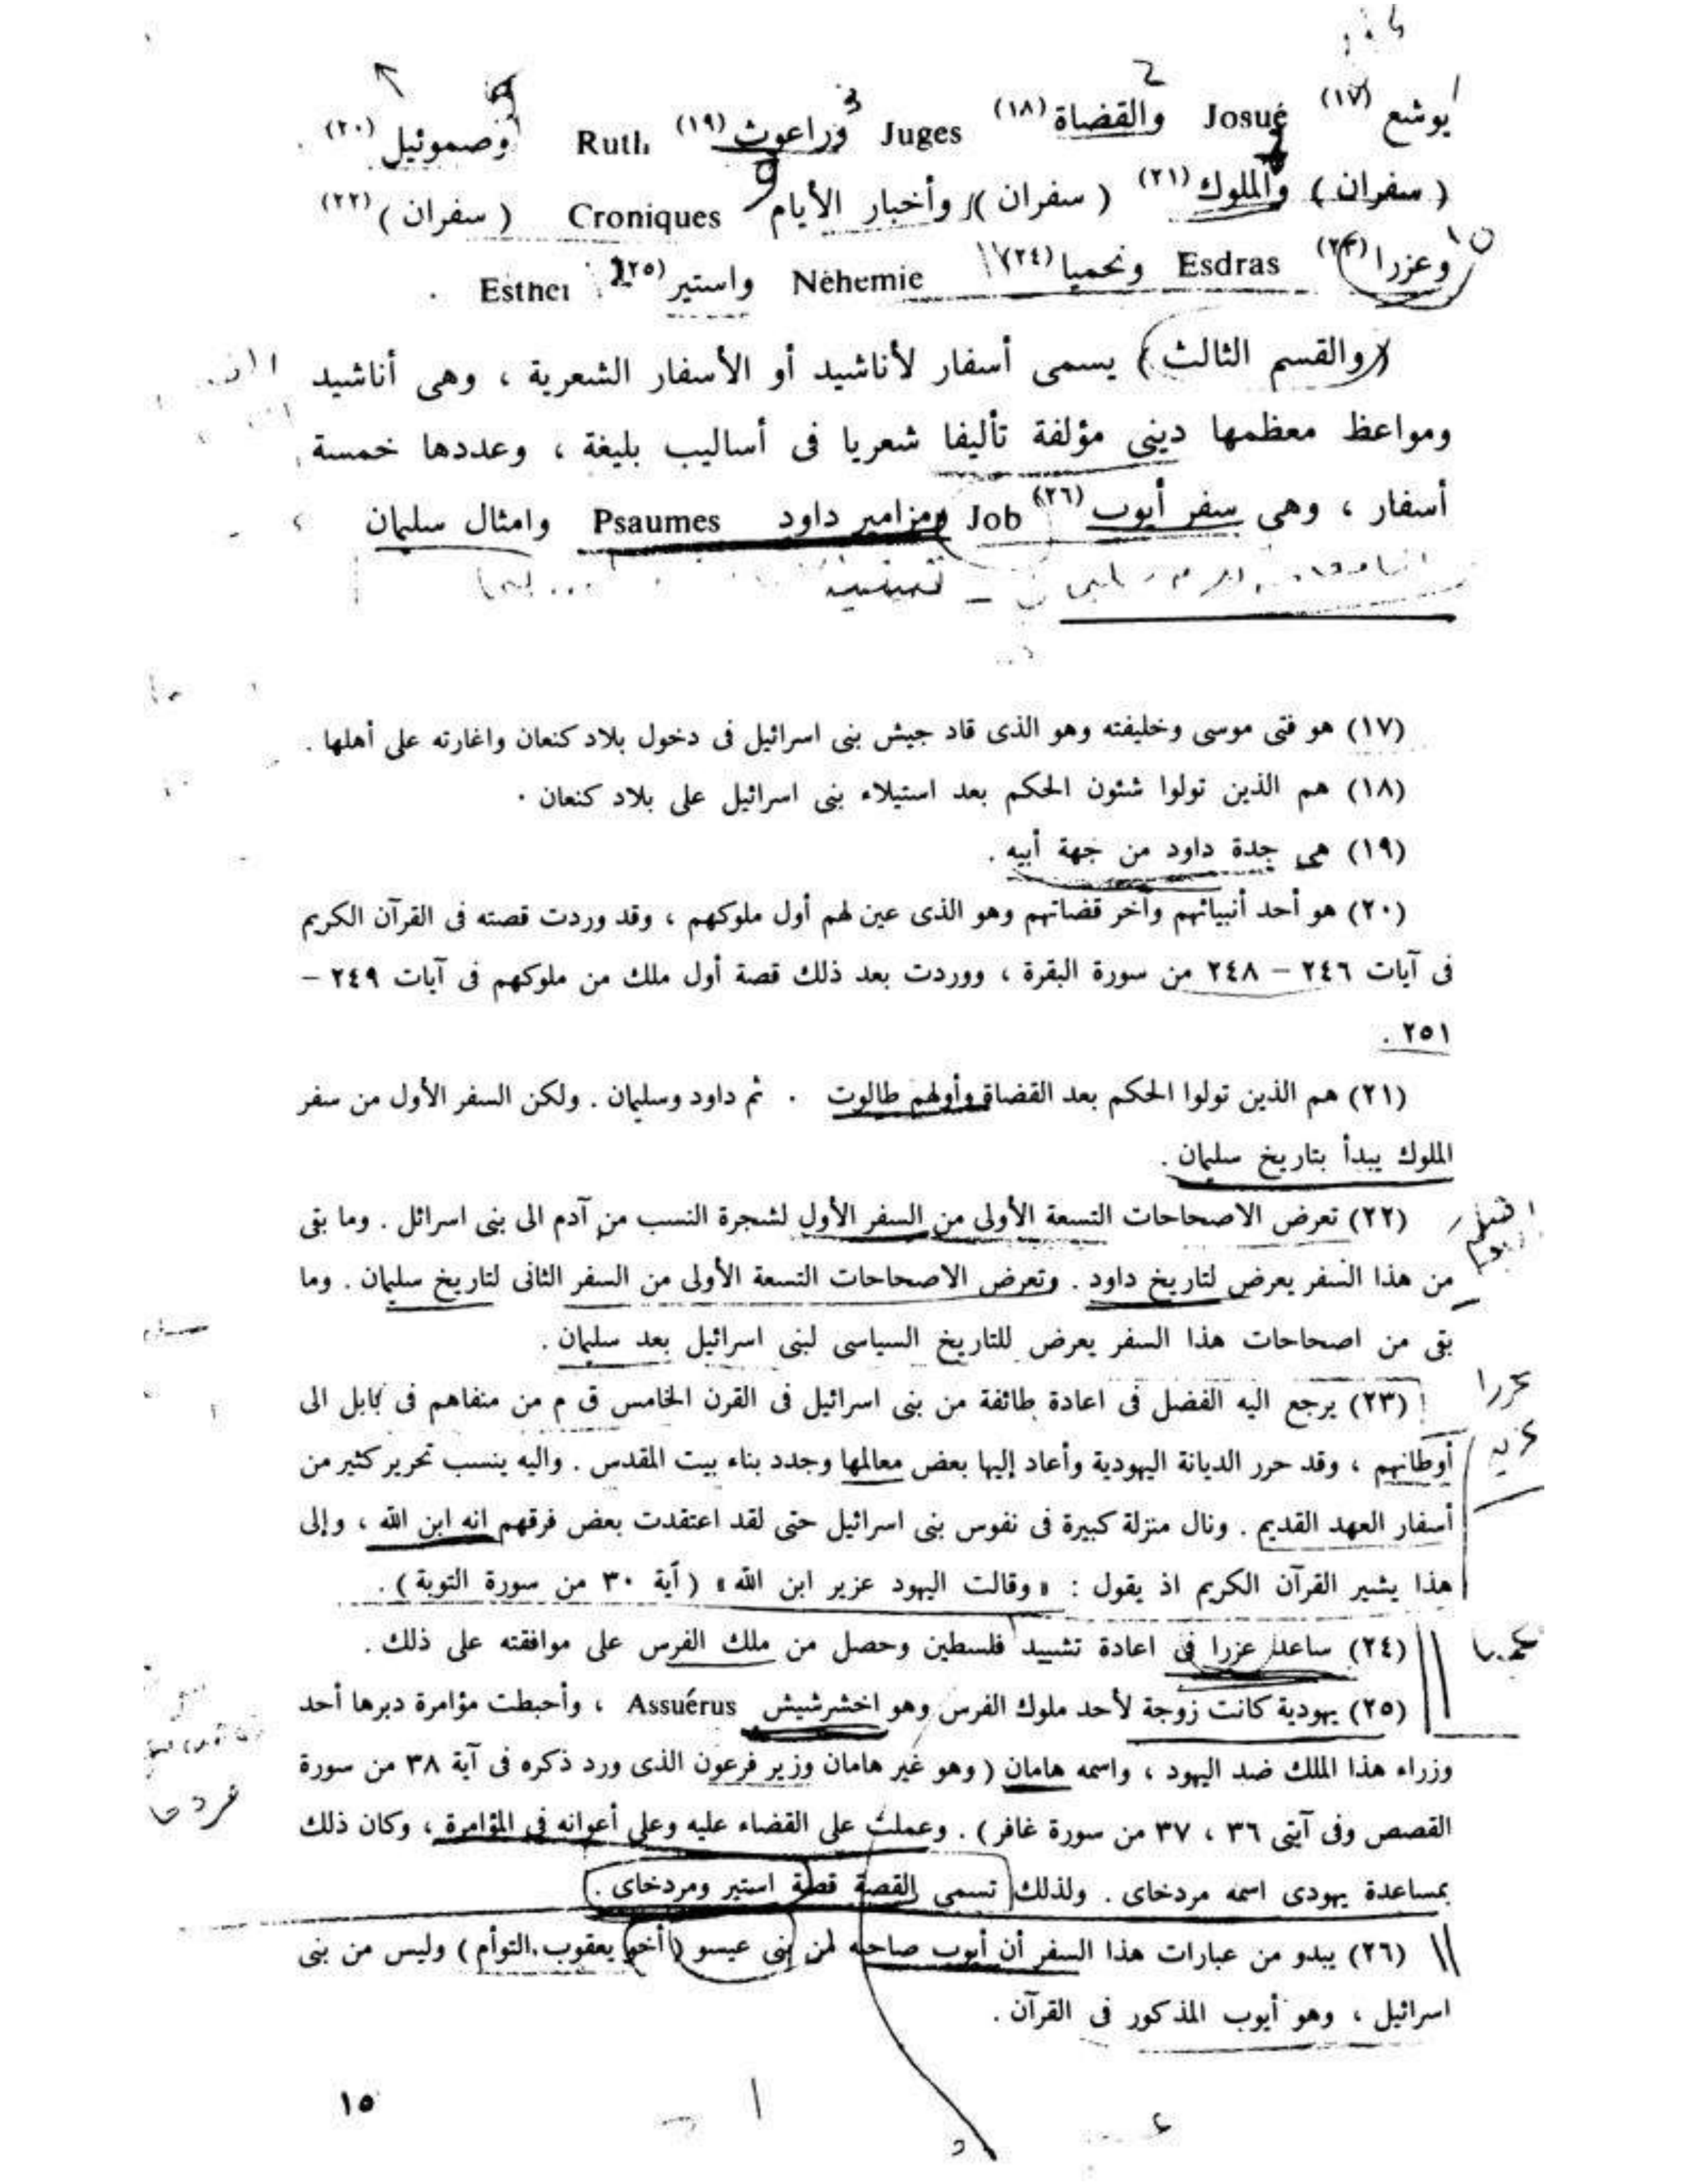 يوشع (١٧) Josué والقضاة (١٨) Juges وراعوث (١٩) Ruth وصموئيل (٢٠)
( سفران ) والملوك (٢١) ( سفران ) وأخبار الأيام Croniques ( سفران ) (٢٢)
وعزرا (٢٣) Esdras ونحميا (٢٤) Néhemie واستير (٢٥) Esther .
( والقسم الثالث ) يسمى أسفار لأناشيد أو الأسفار الشعرية ، وهى أناشيد
ومواعظ معظمها دينى مؤلفة تأليفا شعريا فى أساليب بليغة ، وعددها خمسة
أسفار ، وهى سفر أيوب (٢٦) Job ومزامير داود Psaumes وامثال سليمان
(١٧) هو فتى موسى وخليفته وهو الذى قاد جيش بنى اسرائيل فى دخول بلاد كنعان واغارته على أهلها .
(١٨) هم الذين تولوا شئون الحكم بعد استيلاء بنى اسرائيل على بلاد كنعان .
(١٩) هى جدة داود من جهة أبيه .
(٢٠) هو أحد أنبيائهم وآخر قضاتهم وهو الذى عين لهم أول ملوكهم ، وقد وردت قصته فى القرآن الكريم
فى آيات ٢٤٦ – ٢٤٨ من سورة البقرة ، ووردت بعد ذلك قصة أول ملك من ملوكهم فى آيات ٢٤٩ –
٢٥١ .
(٢١) هم الذين تولوا الحكم بعد القضاة وأولهم طالوت . ثم داود وسليمان . ولكن السفر الأول من سفر
الملوك يبدأ بتاريخ سليمان .
(٢٢) تعرض الاصحاحات التسعة الأولى من السفر الأول لشجرة النسب من آدم الى بنى اسرائل . وما بقى
من هذا السفر يعرض لتاريخ داود . وتعرض الاصحاحات التسعة الأولى من السفر الثانى لتاريخ سليمان . وما
بقى من اصحاحات هذا السفر يعرض للتاريخ السياسى لبنى اسرائيل بعد سليمان .
(٢٣) يرجع اليه الفضل فى اعادة طائفة من بنى اسرائيل فى القرن الخامس ق م من منفاهم فى بابل الى
أوطانهم ، وقد حرر الديانة اليهودية وأعاد إليها بعض معالمها وجدد بناء بيت المقدس . واليه ينسب تحرير كثير من
أسفار العهد القديم . ونال منزلة كبيرة فى نفوس بنى اسرائيل حتى لقد اعتقدت بعض فرقهم انه ابن الله ، وإلى
هذا يشير القرآن الكريم اذ يقول : « وقالت اليهود عزير ابن الله » ( آية ٣٠ من سورة التوبة ) .
(٢٤) ساعد عزرا فى اعادة تشييد فلسطين وحصل من ملك الفرس على موافقته على ذلك .
(٢٥) يهودية كانت زوجة لأحد ملوك الفرس وهو اخشرشيش Assuérus ، وأحبطت مؤامرة دبرها أحد
وزراء هذا الملك ضد اليهود ، واسمه هامان ( وهو غير هامان وزير فرعون الذى ورد ذكره فى آية ٣٨ من سورة
القصص وفى آيتى ٣٦ ، ٣٧ من سورة غافر ) . وعملت على القضاء عليه وعلى أعوانه فى المؤامرة ، وكان ذلك
بمساعدة يهودى اسمه مردخاى . ولذلك تسمى القصة قصة استير ومردخاى .
(٢٦) يبدو من عبارات هذا السفر أن أيوب صاحبه لمن بنى عيسو ( أخو يعقوب التوأم ) وليس من بنى
اسرائيل ، وهو أيوب المذكور فى القرآن .
١٥